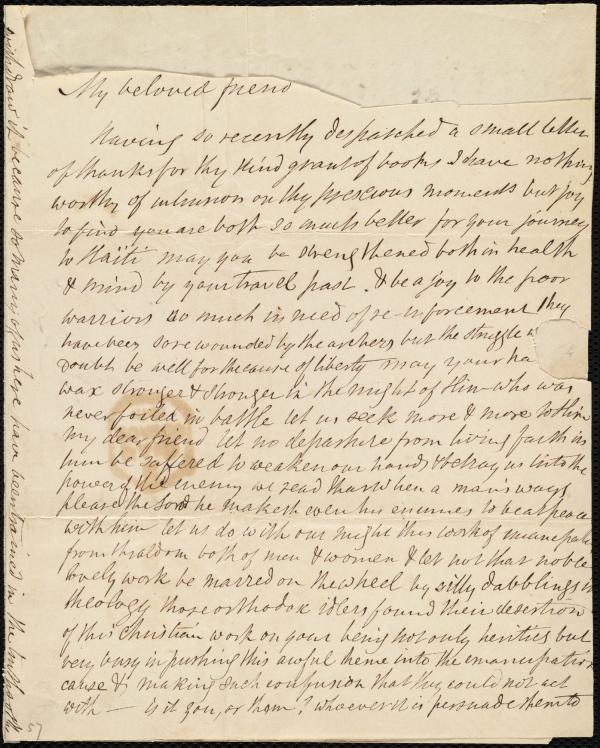 My beloved friend
Having so recently despatched a small letter
of thanks for thy kind grant of books I have nothing
worthy of intrusion on thy prescious moments but joy
to find you are both so much better for your journey
to Haïti may you be strengthened both in health
& mind by your travel past. & be a joy to the poor
warriors so much in need of re-inforcement they
have been sore wounded by the archers but the struggle
doubt be well for the cause of liberty may your ha
wax stronger & stronger in the might of Him who was
never foiled in battle let us seek more & more to Him
my dear friend let no departure from living faith in
him be suffered to weaken our hands & betray us into the
power of the enemy we read that when a man's ways
please the Lord he maketh even his enemies to be at peace
with him let us do with our might this work of emancipati
from thraldom both of men & women & let not that noble
lovely work be marred on the wheel by silly dabblings in
theology those orthodox idlers found their desertion
of this Christian work on your being not only heritics but
very busy in pushing this awful heme into the emancipation
cause & making such confusion that they could not act
with — is it you, or them? whoever it is persuade them to
withdraw it because so many of us here have been trained in the
57